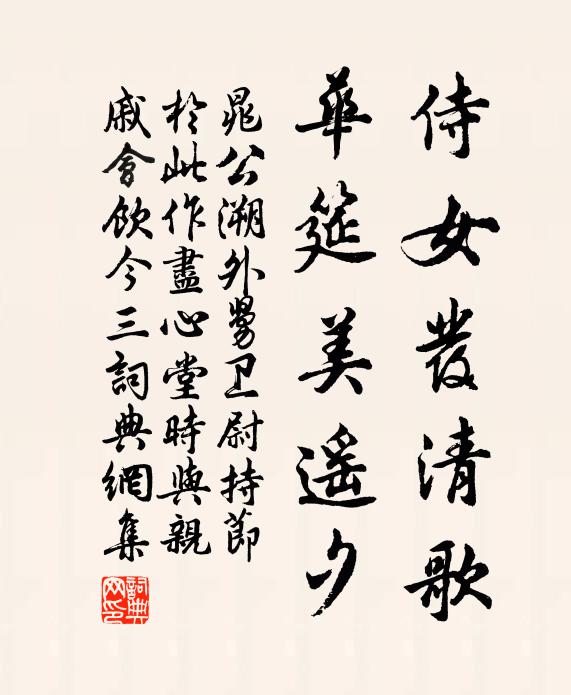 侍女發清歌
華筵美遥夕
晁公溯外舅卫尉持莭
於此作盡心堂時與親
戚會飲今三詞典網集
詞典
网印